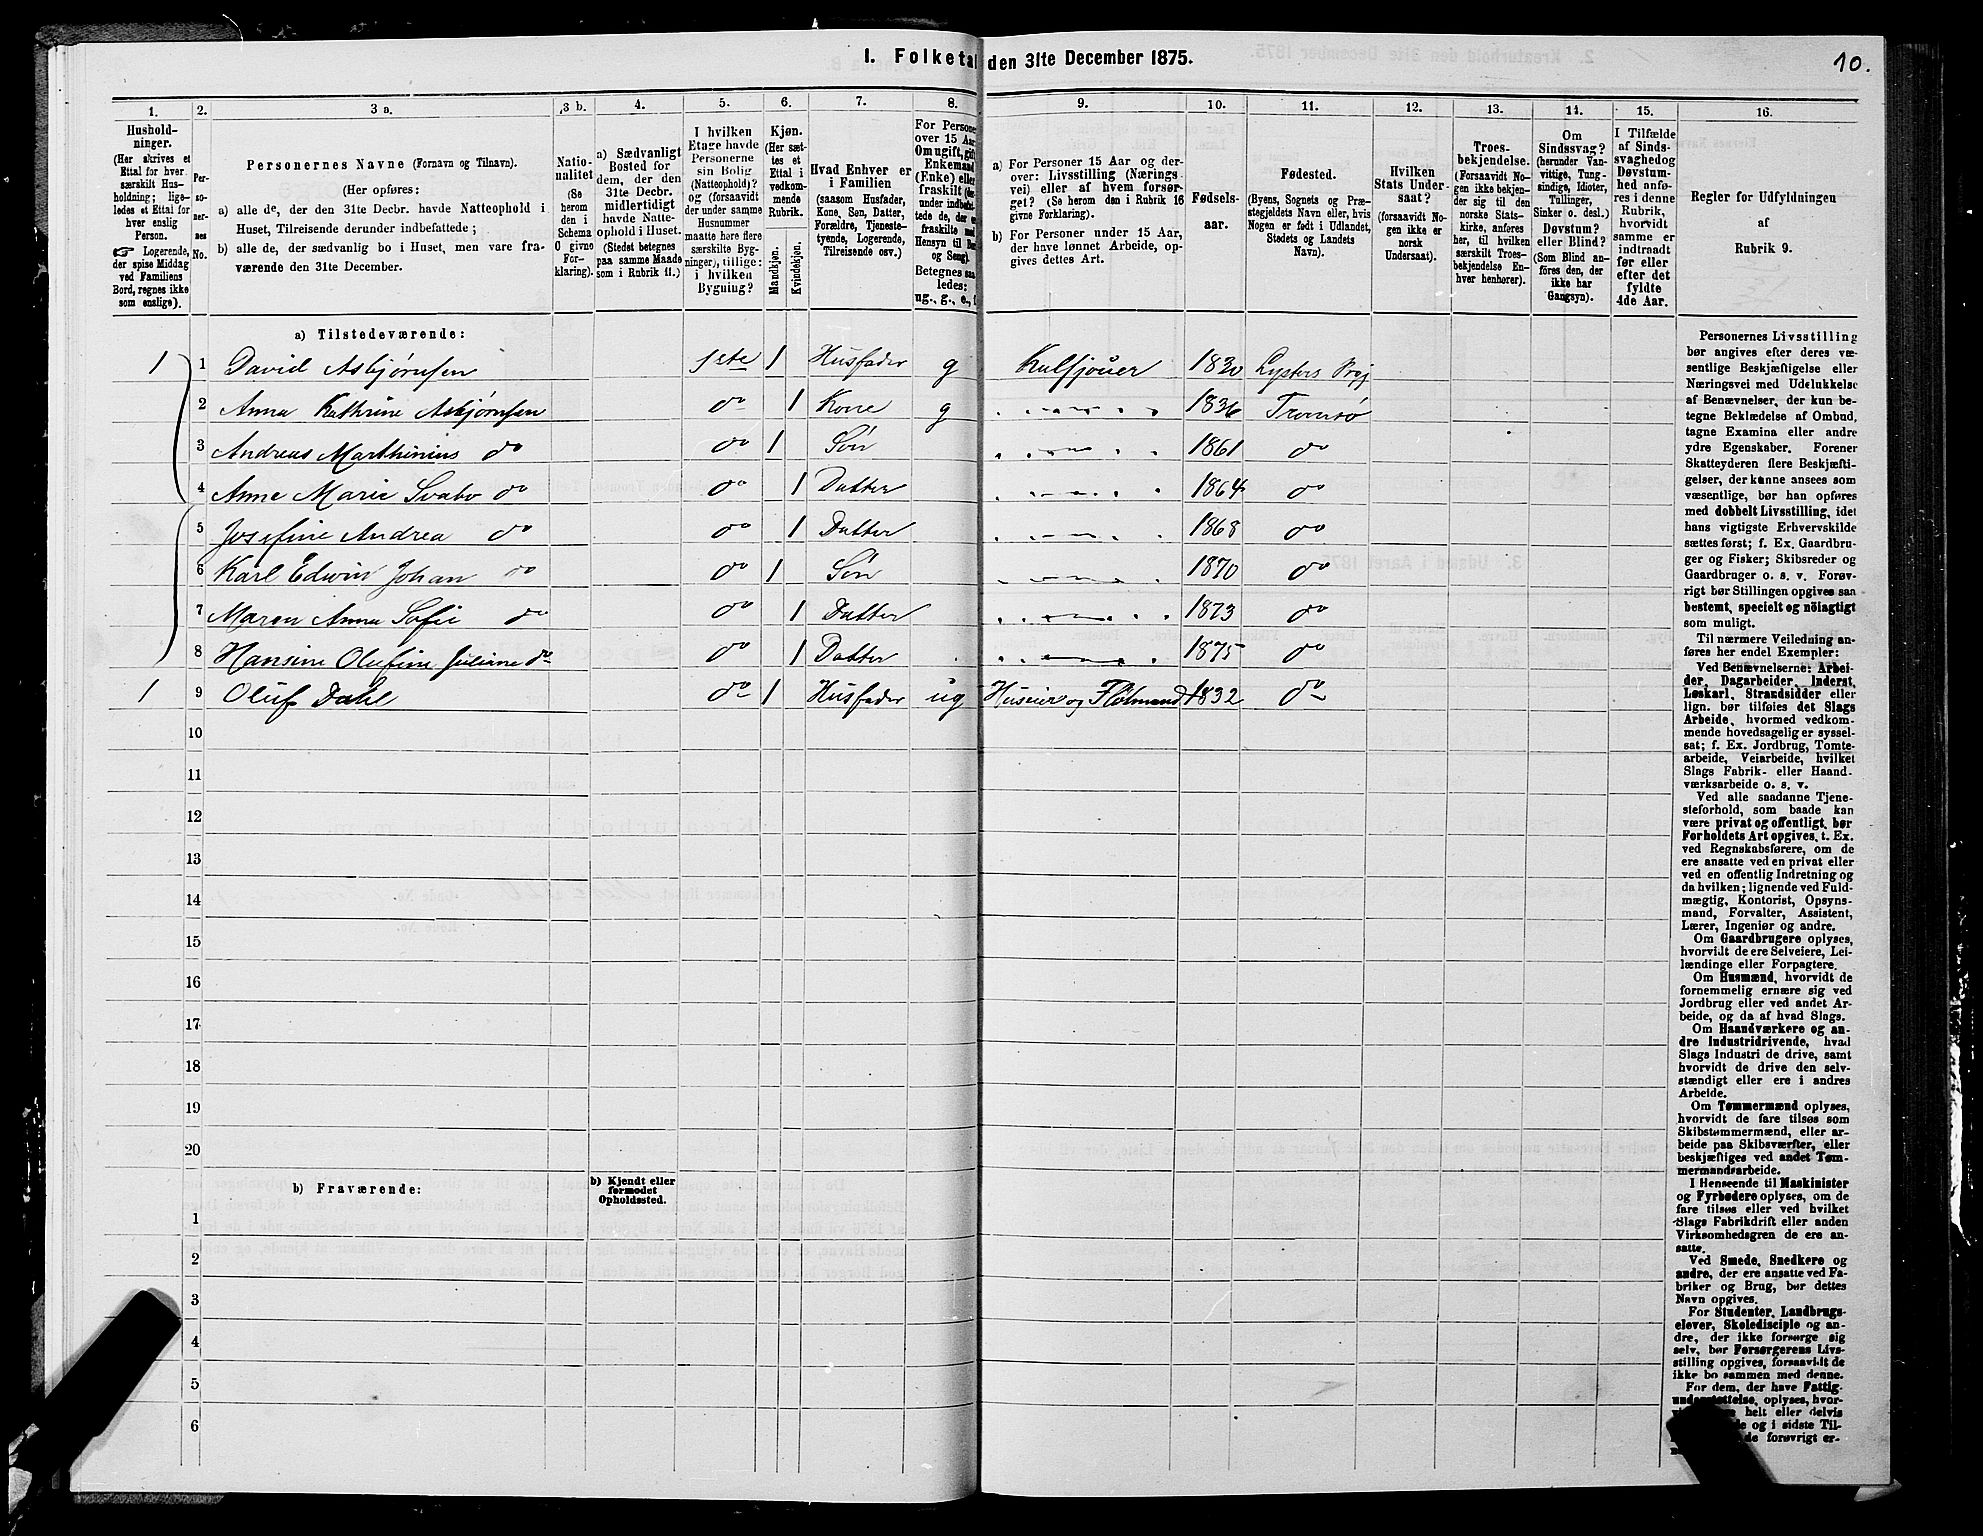 I. Folketal den 31te December 1875.
10.
1. 2. 3 a. 3 b. 4. 5. 6. 7. 8. 9. 10. 11. 12. 13. 14. 15. 16.
Hushold-
ninger.
(Her skrives et
Ettal for hver
særskilt Hus-
holdning; lige-
ledes et Ettal for
hver enslig
Person.
Logerende,
der spise Middag
ved Familiens
Bord, regnes ikke
som enslige).
Per-
so-
ner-
nes
No.
Personernes Navne (Fornavn og Tilnavn).
(Her opføres:
a) alle de, der den 31te Decbr. havde Natteophold i
Huset, Tilreisende derunder indbefattede;
b) alle de, der sædvanlig bo i Huset, men vare fra-
værende den 31te December.
Natio-
nalitet
(Se
herom
den i
Schema
O givne
For-
klaring).
a) Sædvanligt
Bosted for
dem, der den
31te Decbr.
midlertidigt
havde Natte-
ophold i Huset.
(Stedet betegnes
paa samme Maade
som i Rubrik 11.)
I hvilken
Etage havde
Personerne
sin Bolig
(Natteophold)?
og (forsaavidt
der under samme
Husnummer
maatte høre flere
særskilte Byg-
ninger), tillige:
i hvilken
Bygning?
Kjøn.
(Her sæt-
tes et
Ettal i
vedkom-
mende
Rubrik.
Mandkjøn.
Kvindekjøn.
Hvad Enhver er
i Familien
(saasom Husfader,
Kone, Søn, Datter,
Forældre, Tjeneste-
tyende, Logerende,
Tilreisende osv.)
For Persone
over 15 Aar
Om ugift, gift
Enkemand
(Enke) eller
fraskilt
under indbefat-
tede de, der er
fraskilte med
Hensyn til Bo
og Seng).
Betegnes saa
ledes:
ug., g., e., f.
a) For Personer 15 Aar og der-
over: Livsstilling (Nærings
vei) eller af hvem forsør-
get? (Se herom den i Rubrik 16
givne Forklaring).
b) For Personer under 15 Aar,
der have lønnet Arbeide, op-
gives dettes Art.
Fødsels-
aar.
Fødested.
(Byens, Sognets og Præ-
stegjeldets Navn eller, hvis
Nogen er født i Udlandet,
Stedets og Landets
Navn).
Hvilken
Stats Under-
saat?
(forsaavidt No-
gen ikke er
norsk
Undersaat).
Troes-
bekjendelse.
(Forsaavidt No-
gen ikke bekjen-
der sig til den
norske Stats-
kirke, anføres
her, til hvilken
særskilt Troes-
bekjendelse En-
hver henhører).
Om
Sindssvag?
(herunder Van-
vittige, Tung-
sindige, Idioter,
Tullinger,
Sinker o. desl.)
Døvstum?
eller Blind?
(Som Blind an-
føres den, der
ikke har
Gangsyn).
I Tilfælde
af Sinds-
svaghed og
Døvstum-
hed anfø-
res i denne
Rubrik,
hvorvidt
samme er
indtraadt
før eller
efter det
fyldte
4de Aar.
Regler for Udfyldningen
af
Rubrik 9.
a) Tilstedeværende:
1 1 David Asbjørnsen 1ste 1 Husfader g 1830 Lysters Prgj
2 Anna Kathrine Asbjørnsen do 1 Kone g 1836 Tromsø
3 Andreas Marthinius do do 1 Søn 1861 do
4 Anne Marie Svabo do do 1 Datter 1864 do
5 Josefine Andrea do do 1 Datter 1868 do
6 Karl Edwin Johan do do 1 Søn 1870 do
7 Maren Anna Sofie do do 1 Datter 1873 do
8 Hansine Olufine Juliane do do 1 Datter 1875 do
1 9 Oluf Dahl do 1 Husfader ug Huseier og Fløtmand 1832 do
10
11
12
13
14
15
16
17
18
19
20
b) Fraværende:
b) Kjendt eller
formodet
Opholdssted.
1
2
3
4
5
6
Personernes Livsstilling
bør angives efter deres væ-
sentlige Beskjæftigelse eller
Næringsvei med Udelukkelse
af Benævnelser, der kun be-
tegne Beklædelse af Ombud,
tagne Examina eller andre
ydre Egenskaber. Forener
Skatteyderen flere Beskjæfti-
gelser, der kunne ansees som
væsentlige, bør han opføres
med dobbelt Livsstilling, idet
hans vigtigste Erhvervskilde
sættes først; f. Ex. Gaardbru-
ger og Fisker; Skibsreder og
Gaardbruger o. s. v. Forøv-
rigt bør Stillingen opgives saa
bestemt, specielt og nøiagtigt
som muligt.
Til nærmere Veiledning an-
føres her endel Exempler:
Ved Benævnelserne: Arbei-
der, Dagarbeider, Inderst,
Løskarl, Strandsidder eller
lign. bør tilføies det Slags
Arbeide, hvormed vedkom-
mende hovedsagelig er syssel-
sat; f. Ex. Jordbrug, Tomte-
arbeide, Veiarbeide, hvilket
Slags Fabrik- eller Haand-
værksarbeide o. s. v.
Ved alle saadanne Tjene-
steforhold, som baade kan
være privat og offentligt, bør
Forholdets Art opgives, t. Ex.
ved Regnskabsførere, om de
ere ansatte ved en privat eller
ved en offentlig Indretning og
da hvilken; lignende ved Fuld-
mægtig, Kontorist, Opsyns-
mand, Forvalter, Assistent,
Lærer, Ingeniør og andre.
Om Gaardbrugere oplyses,
hvorvidt de ere Selveiere, Lei-
lændinge eller Forpagtere.
Om Husmænd, hvorvidt de
fornemmelig ernære sig ved
Jordbrug eller ved andet Ar-
beide, og da af hvad Slags.
Om Haandværkere og an-
dre Industridrivende, hvad
Slags Industri de drive, samt
hvorvidt de drive den selv-
stændigt eller ere i andres
Arbeide.
Om Tømmermænd oplyses,
hvorvidt de fare tilsøs som
Skibstømmermænd, eller ar-
beide paa Skibsværfter, eller
beskjæftiges ved andet Tøm-
mermandsarbeide.
I Henseende til Maskinister
og Fyrbødere oplyses, om de
fare tilsøs eller ved hvilket
Slags Fabrikdrift eller anden
Virksomhedsgren de ere an-
satte.
Ved Smede, Snedkere og
andre, der ere ansatte ved Fa-
briker og Brug, bør dettes
Navn opgives.
For Studenter, Landbrugs-
elever, Skoledisciple og an-
dre, der ikke forsørge sig
selv, bør Forsørgerens Livs-
stilling opgives, forsaavidt de
ikke bo sammen med denne.
For dem, der have Fattig-
understøttelse, oplyses, hvor-
helt eller delvis
de og i sidste Til-
de forøvrigt er-